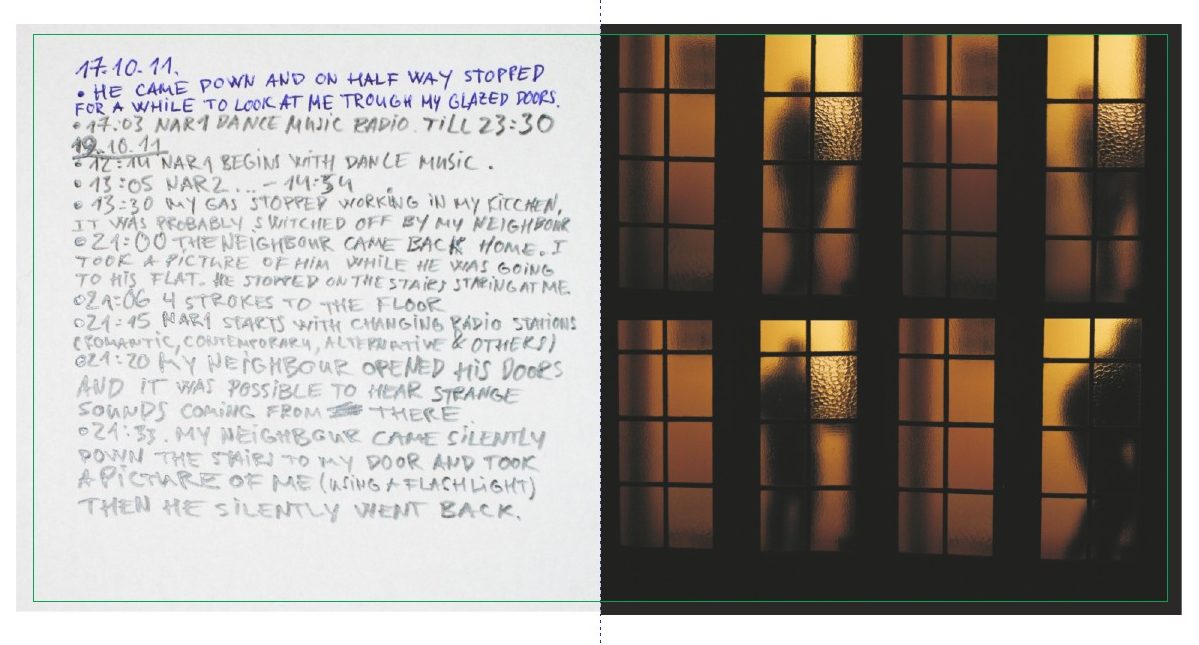 17.10.11.
• HE CAME DOWN AND ON HALF WAY STOPPED
FOR A WHILE TO LOOK AT ME TROUGH MY GLAZED DOORS.
• 17:03 NAR1 DANCE MUSIC RADIO. TILL 23:30
19.10.11
• 12:14 NAR1 BEGINS WITH DANCE MUSIC.
• 13:05 NAR2... - 14:54
• 13:30 MY GAS STOPPED WORKING IN MY KITCHEN,
IT WAS PROBABLY SWITCHED OFF BY MY NEIGHBOUR
• 21:00 THE NEIGHBOUR CAME BACK HOME. I
TOOK A PICTURE OF HIM WHILE HE WAS GOING
TO HIS FLAT. HE STOPPED ON THE STAIRS STARING AT ME.
• 21:06 4 STROKES TO THE FLOOR
• 21:15 NAR1 STARTS WITH CHANGING RADIO STATIONS
(ROMANTIC, CONTEMPORARY, ALTERNATIVE & OTHERS)
• 21:20 MY NEIGHBOUR OPENED HIS DOORS
AND IT WAS POSSIBLE TO HEAR STRANGE
SOUNDS COMING FROM THERE
• 21:33. MY NEIGHBOUR CAME SILENTLY
DOWN THE STAIRS TO MY DOOR AND TOOK
A PICTURE OF ME (USING A FLASHLIGHT)
THEN HE SILENTLY WENT BACK.